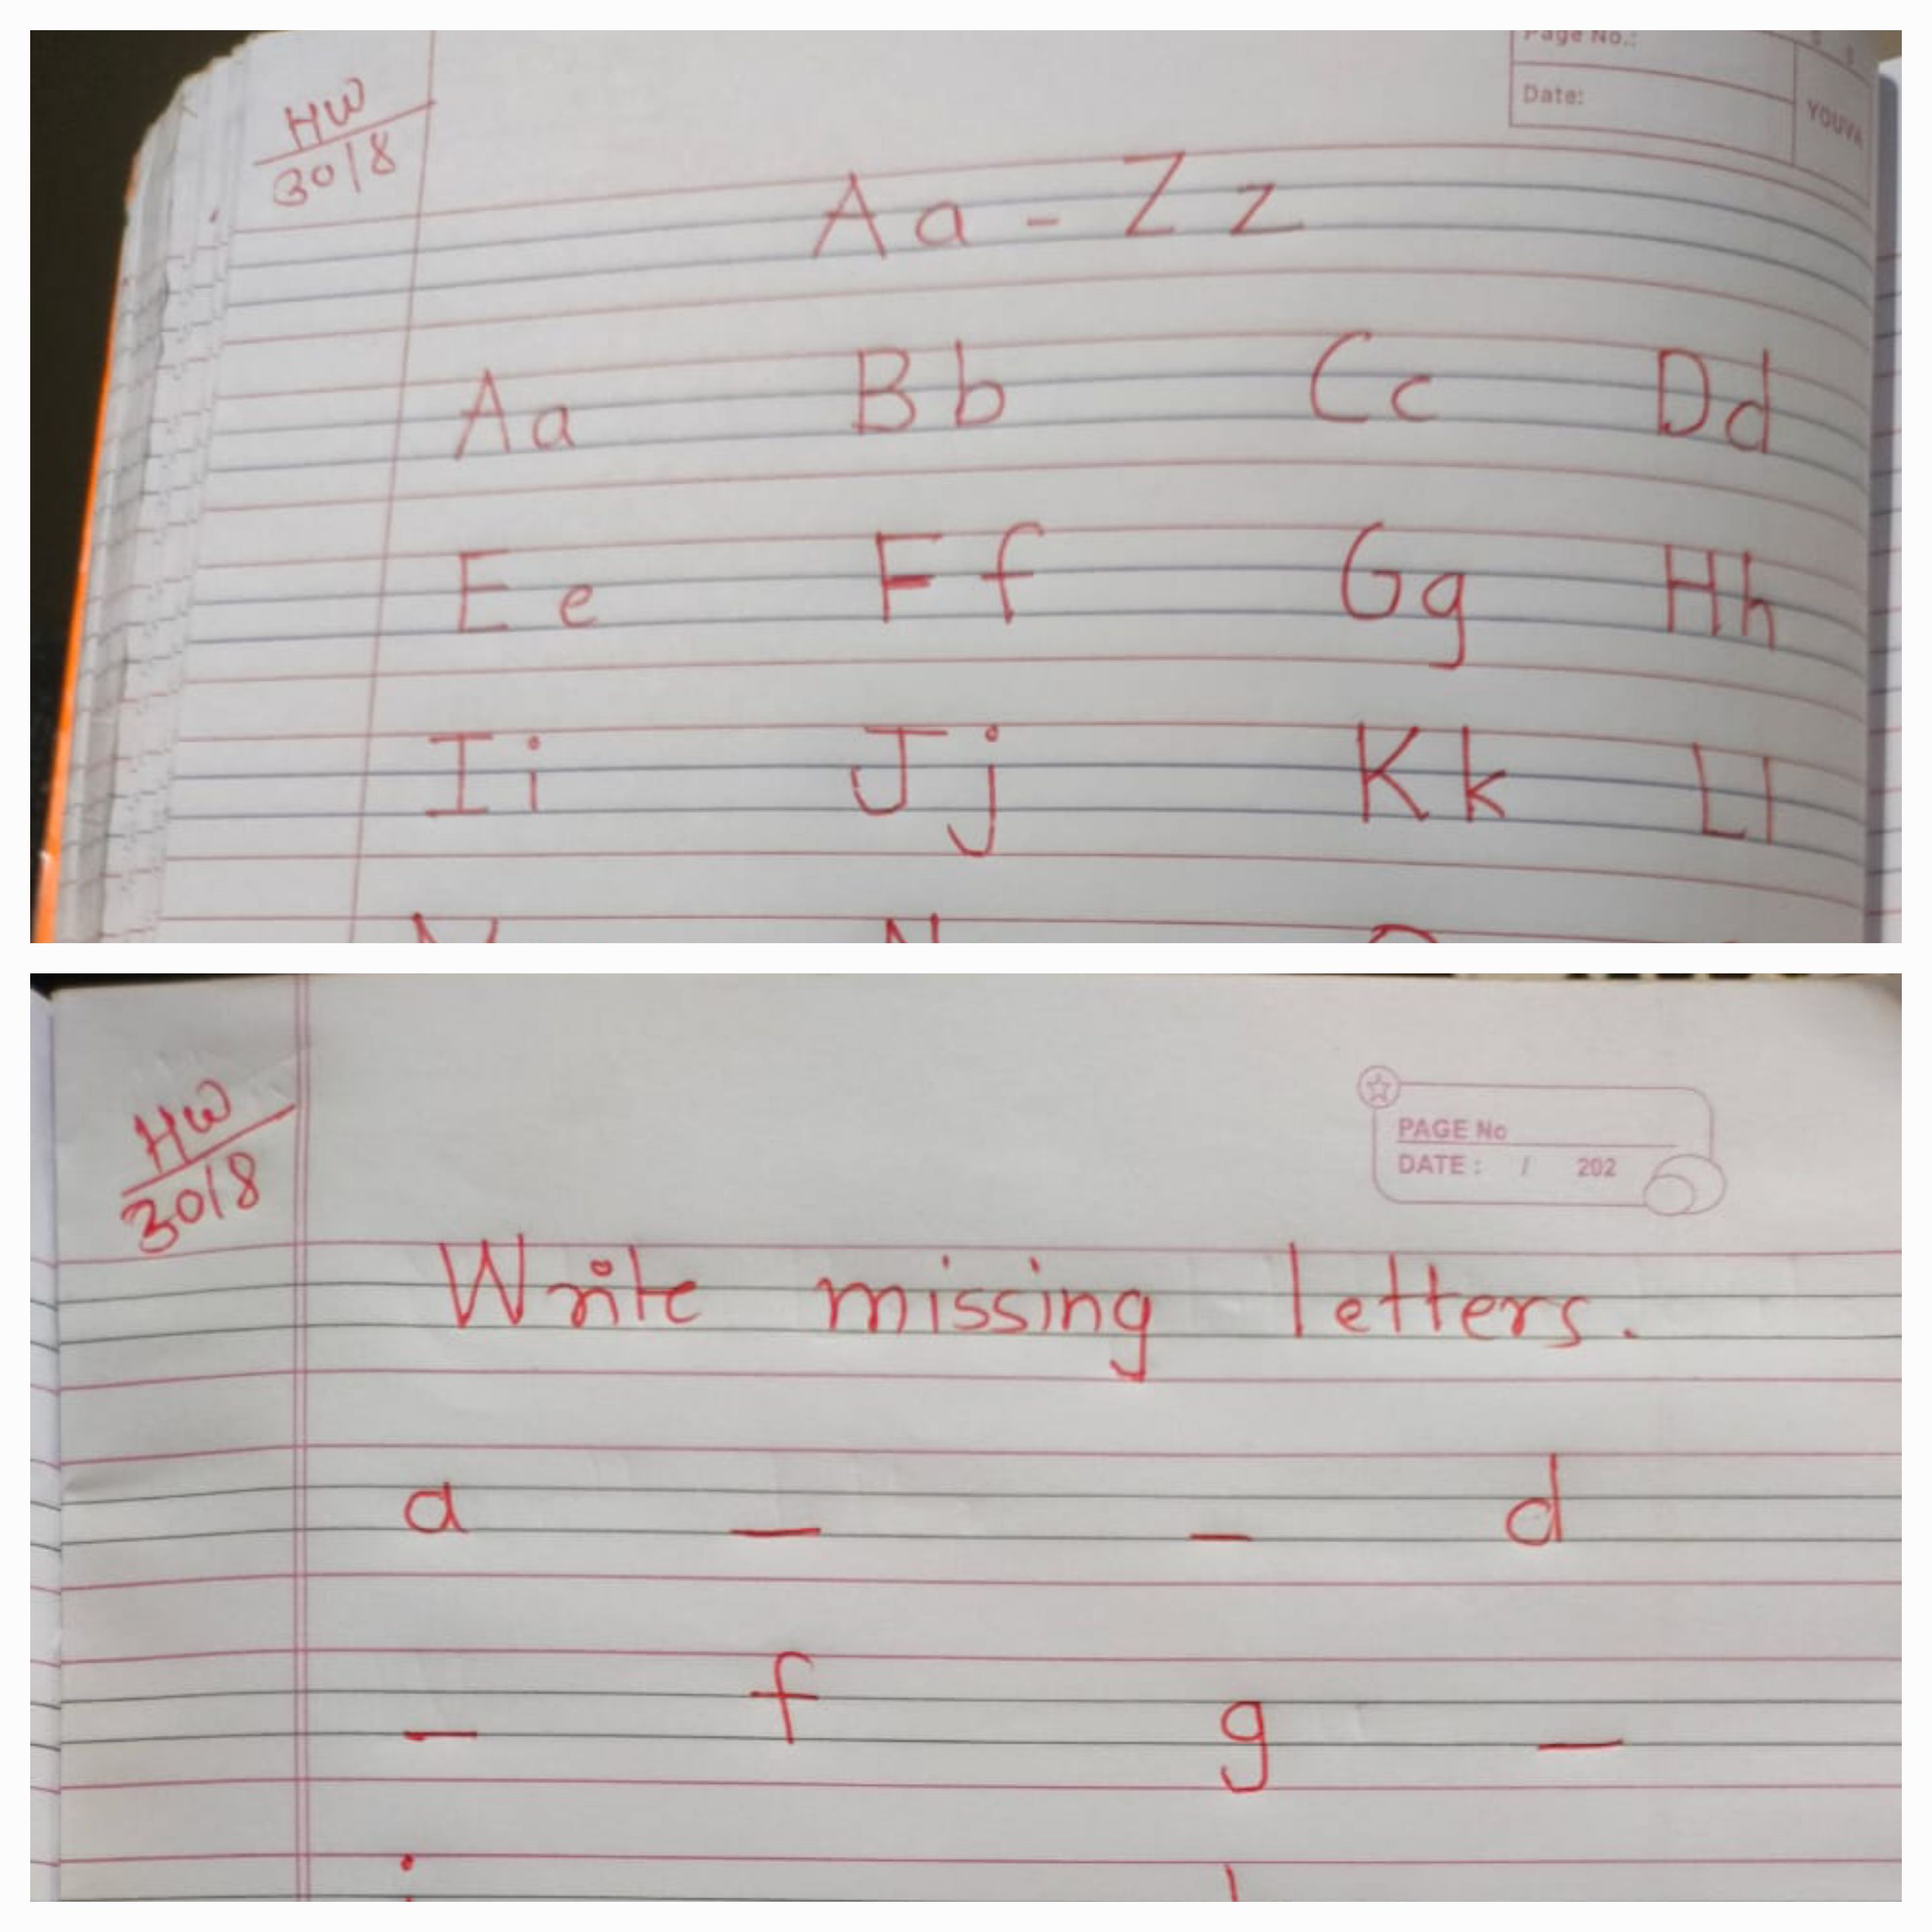 Page No.:
Date:
YOUVA
HW
30/8
Aa - Zz
Aa Bb Cc Dd
Ee Ff Gg Hh
Ii Jj Kk Ll
HW
30/8
PAGE No
DATE : / 202
Write missing letters.
a _ _ d
_ f g _